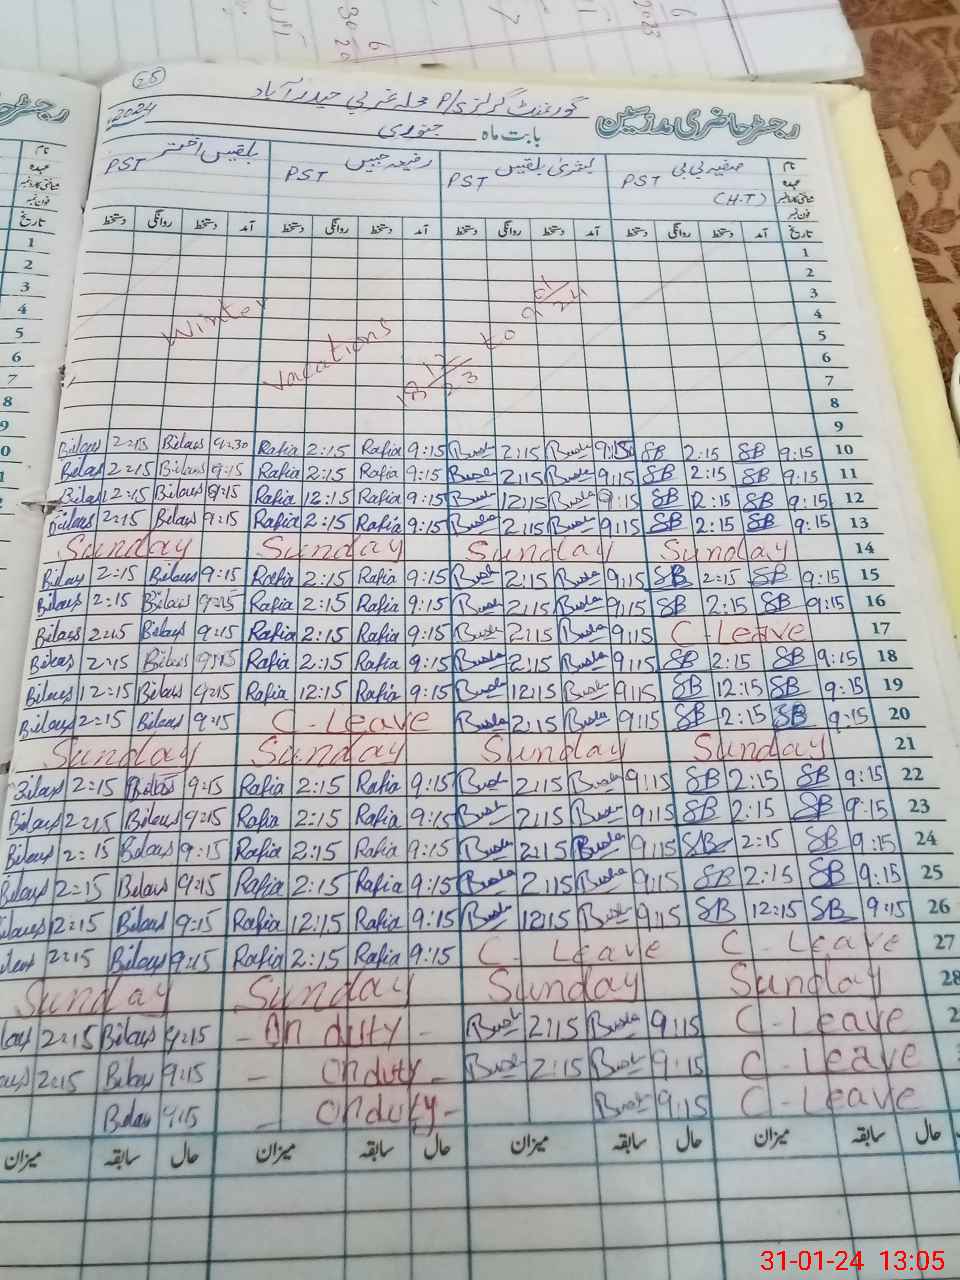 25
گورنمنٹ گرلز P/S محلہ غربی حیدر آباد
رجسٹر حاضری مدرسین
بابت ماہ جنوری 2024
نام صفیہ بی بی بشریٰ بلقیس رفیعہ جبیں بلقیس اختر
عہدہ PST PST PST PST
(H.T)
تاریخ آمد دستخط روانگی دستخط آمد دستخط روانگی دستخط آمد دستخط روانگی دستخط آمد دستخط روانگی دستخط
1
2
3
4
5
6
7
8
9
Winter Vacations 18 12/23 to 9 01/24
Bilqys 2:15 Bilqys 9:30 Rafia 2:15 Rafia 9:15 Bush 2:15 Bush 9:15 SB 2:15 SB 9:15 10
Bilqys 2:15 Bilqys 9:15 Rafia 2:15 Rafia 9:15 Bush 2:15 Bush 9:15 SB 2:15 SB 9:15 11
Bilqys 12:15 Bilqys 9:15 Rafia 12:15 Rafia 9:15 Bush 12:15 Bush 9:15 SB 12:15 SB 9:15 12
Bilqys 2:15 Bilqys 9:15 Rafia 2:15 Rafia 9:15 Bush 2:15 Bush 9:15 SB 2:15 SB 9:15 13
Sunday Sunday Sunday Sunday 14
Bilqys 2:15 Bilqys 9:15 Rafia 2:15 Rafia 9:15 Bush 2:15 Bush 9:15 SB 2:15 SB 9:15 15
Bilqys 2:15 Bilqys 9:15 Rafia 2:15 Rafia 9:15 Bush 2:15 Bush 9:15 SB 2:15 SB 9:15 16
Bilqys 2:15 Bilqys 9:15 Rafia 2:15 Rafia 9:15 Bush 2:15 Bush 9:15 C-Leave 17
Bilqys 2:15 Bilqys 9:15 Rafia 2:15 Rafia 9:15 Bush 2:15 Bush 9:15 SB 2:15 SB 9:15 18
Bilqys 12:15 Bilqys 9:15 Rafia 12:15 Rafia 9:15 Bush 12:15 Bush 9:15 SB 12:15 SB 9:15 19
Bilqys 2:15 Bilqys 9:15 C-Leave Bush 2:15 Bush 9:15 SB 2:15 SB 9:15 20
Sunday Sunday Sunday Sunday 21
Bilqys 2:15 Bilqys 9:15 Rafia 2:15 Rafia 9:15 Bush 2:15 Bush 9:15 SB 2:15 SB 9:15 22
Bilqys 2:15 Bilqys 9:15 Rafia 2:15 Rafia 9:15 Bush 2:15 Bush 9:15 SB 2:15 SB 9:15 23
Bilqys 2:15 Bilqys 9:15 Rafia 2:15 Rafia 9:15 Bush 2:15 Bush 9:15 SB 2:15 SB 9:15 24
Bilqys 2:15 Bilqys 9:15 Rafia 2:15 Rafia 9:15 Bush 2:15 Bush 9:15 SB 2:15 SB 9:15 25
Bilqys 12:15 Bilqys 9:15 Rafia 12:15 Rafia 9:15 Bush 12:15 Bush 9:15 SB 12:15 SB 9:15 26
2:15 Bilqys 9:15 Rafia 2:15 Rafia 9:15 C-Leave C-Leave 27
Sunday Sunday Sunday Sunday 28
2:15 Bilqys 9:15 - On duty - Bush 2:15 Bush 9:15 C-Leave
2:15 Bilqys 9:15 - On duty - Bush 2:15 Bush 9:15 C-Leave
Bilqys 9:15 - On duty - Bush 9:15 C-Leave
حال سابقہ میزان حال سابقہ میزان حال سابقہ میزان حال سابقہ میزان
31-01-24 13:05